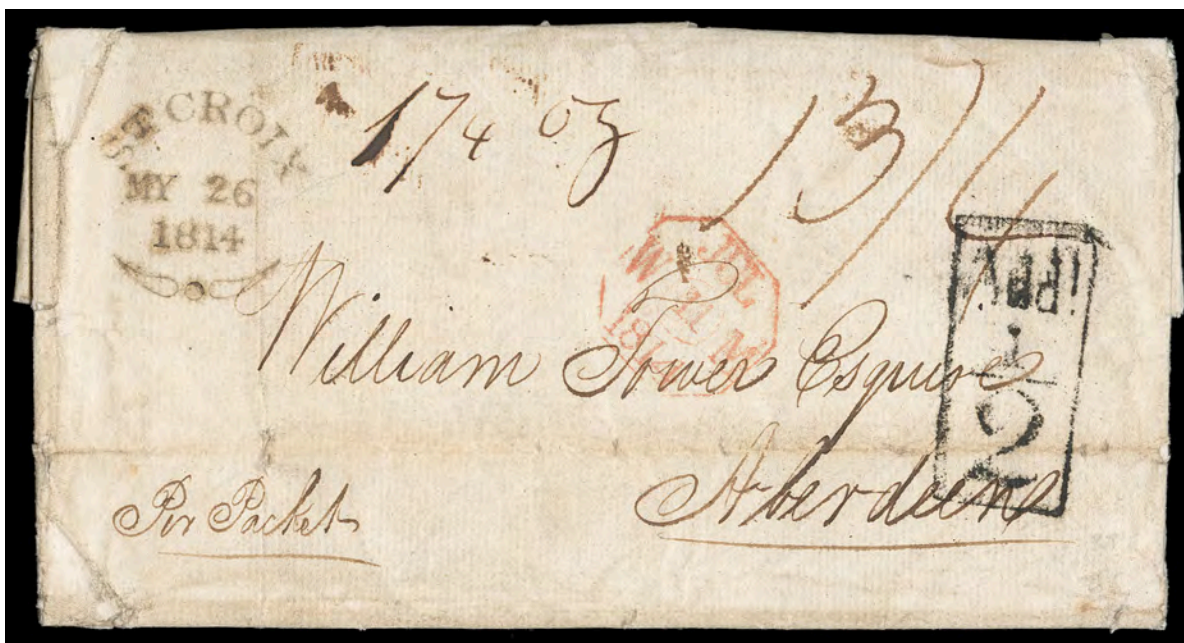 ST CROIX
MY 26
1814
1 1/4 oz
13/4
JUL
W 11 M
181
William Tower Esquire
Aberdeen
Per Packet
Addl
1
2